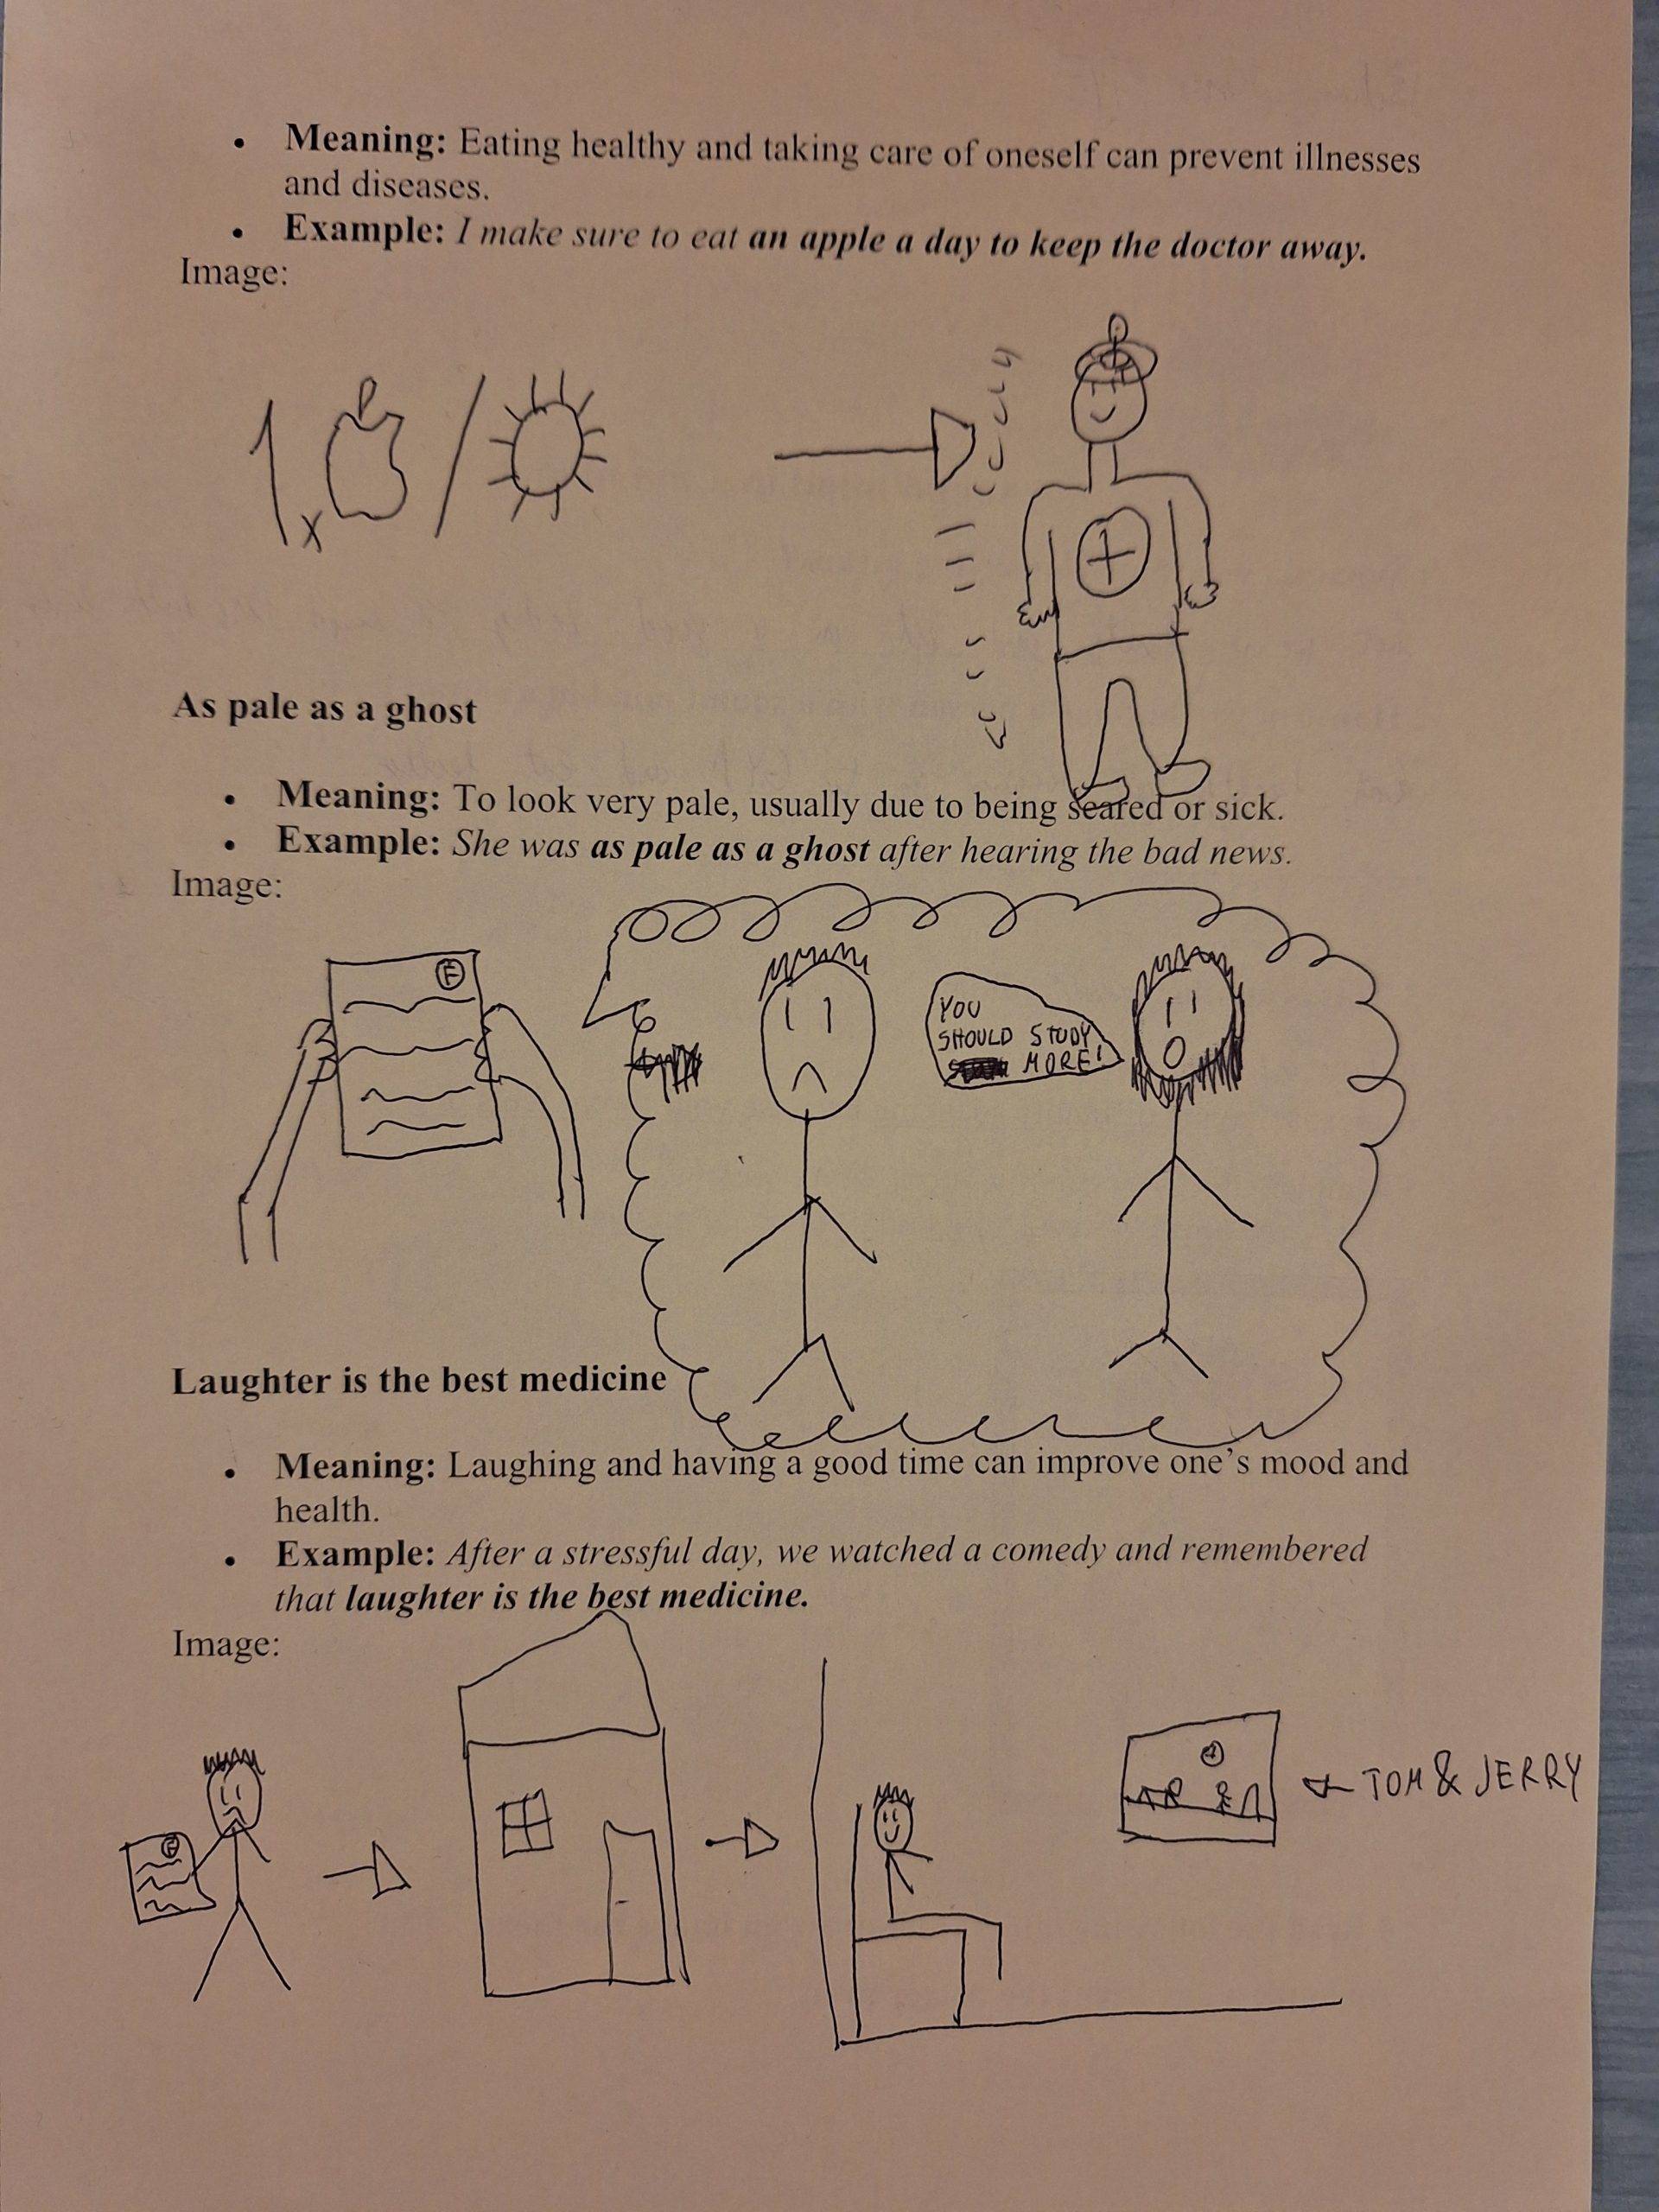 • Meaning: Eating healthy and taking care of oneself can prevent illnesses
and diseases.
• Example: I make sure to eat an apple a day to keep the doctor away.
Image:
1x / 
As pale as a ghost
• Meaning: To look very pale, usually due to being scared or sick.
• Example: She was as pale as a ghost after hearing the bad news.
Image:
F
YOU
SHOULD STUDY
MORE!
Laughter is the best medicine
• Meaning: Laughing and having a good time can improve one's mood and
health.
• Example: After a stressful day, we watched a comedy and remembered
that laughter is the best medicine.
Image:
F
TOM & JERRY